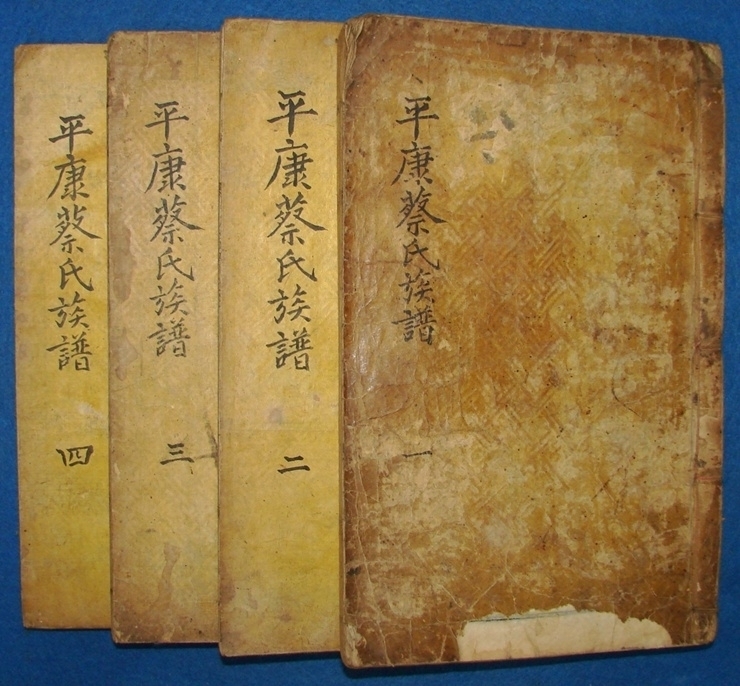 平康蔡氏族譜
一
平康蔡氏族譜
二
平康蔡氏族譜
三
平康蔡氏族譜
四